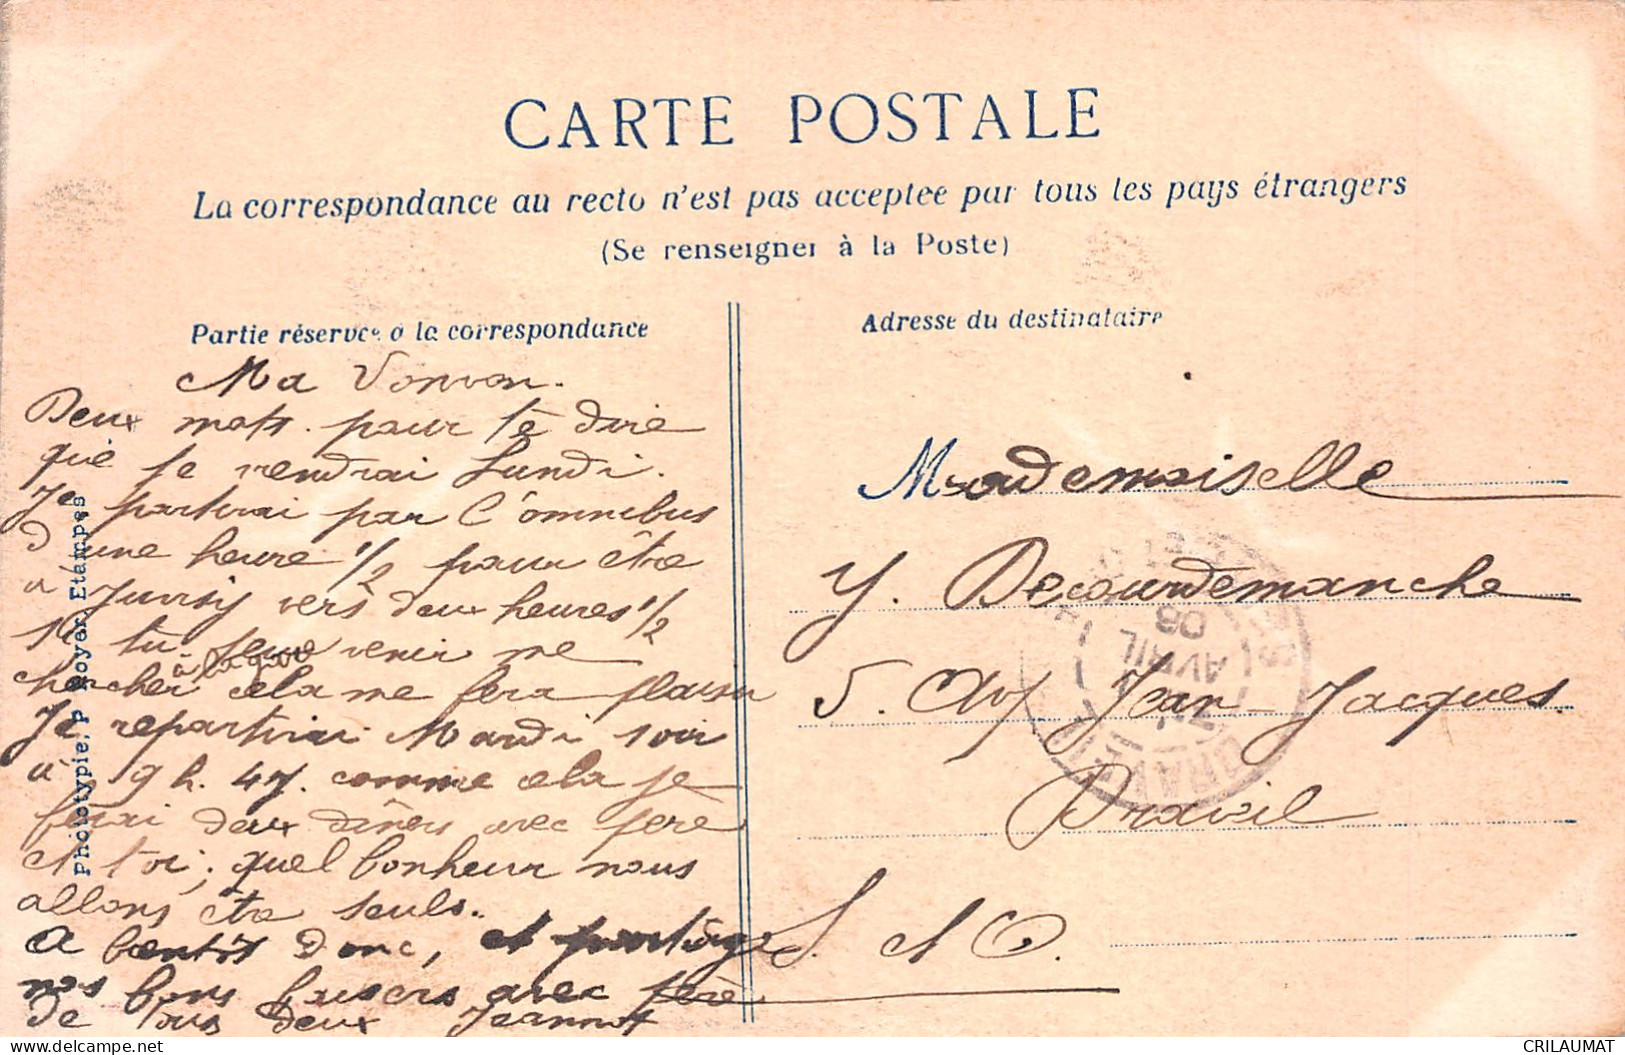 CARTE POSTALE
La correspondance au recto n'est pas acceptée par tous les pays étrangers
(Se renseigner à la Poste)
Partie réservée à la correspondance
Adresse du destinataire
Ma Vonvon.
Deux mots pour te dire
que je viendrai Lundi.
Je partirai par l'omnibus
d'une heure 1/2 pour être
à Juvisy vers deux heures 1/2
si tu peux venir me
chercher cela me fera plaisir
Je repartirai Mardi soir
à 9 h. 47. comme cela je
ferai deux dîners avec père
et toi, quel bonheur nous
allons être seuls.
A bientôt donc, et partage
nos bons baisers avec père
de tous deux Jeannot
Mademoiselle
Y. Decourdemanche
5. Jean-Jacques.
Draveil
S. et O.
AVRIL
08
DRAVEIL
Phototypie, P Royer, Etampes
CRILAUMAT